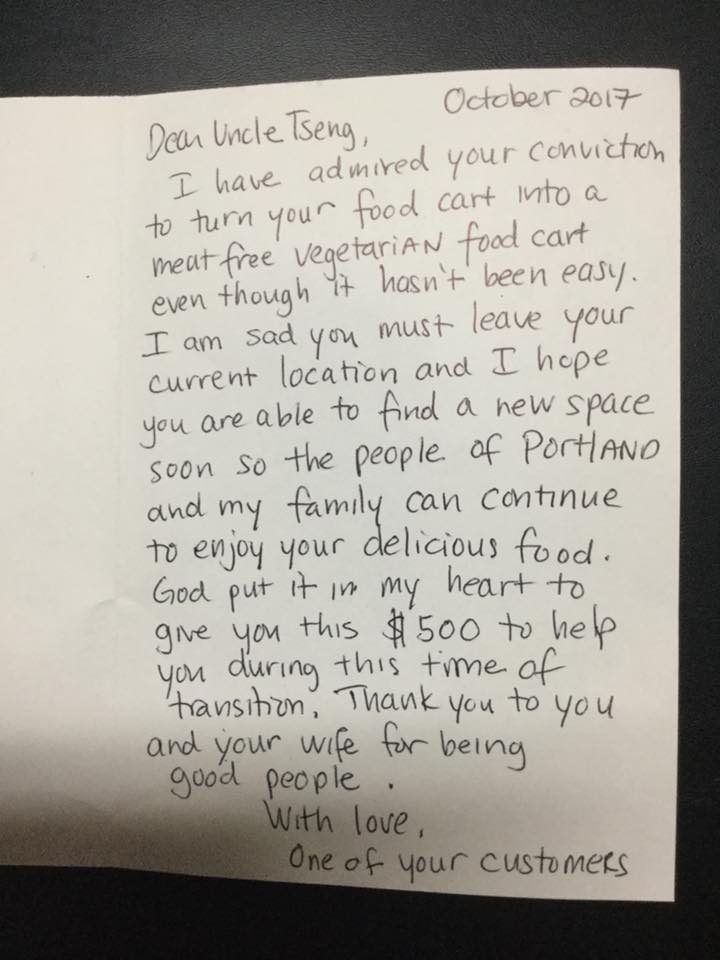 October 2017
Dear Uncle Tseng,
I have admired your conviction
to turn your food cart into a
meat free vegetariAN food cart
even though it hasn't been easy.
I am sad you must leave your
current location and I hope
you are able to find a new space
soon so the people of PortlAND
and my family can continue
to enjoy your delicious food.
God put it in my heart to
give you this $500 to help
you during this time of
transition. Thank you to you
and your wife for being
good people.
With love,
One of your customers